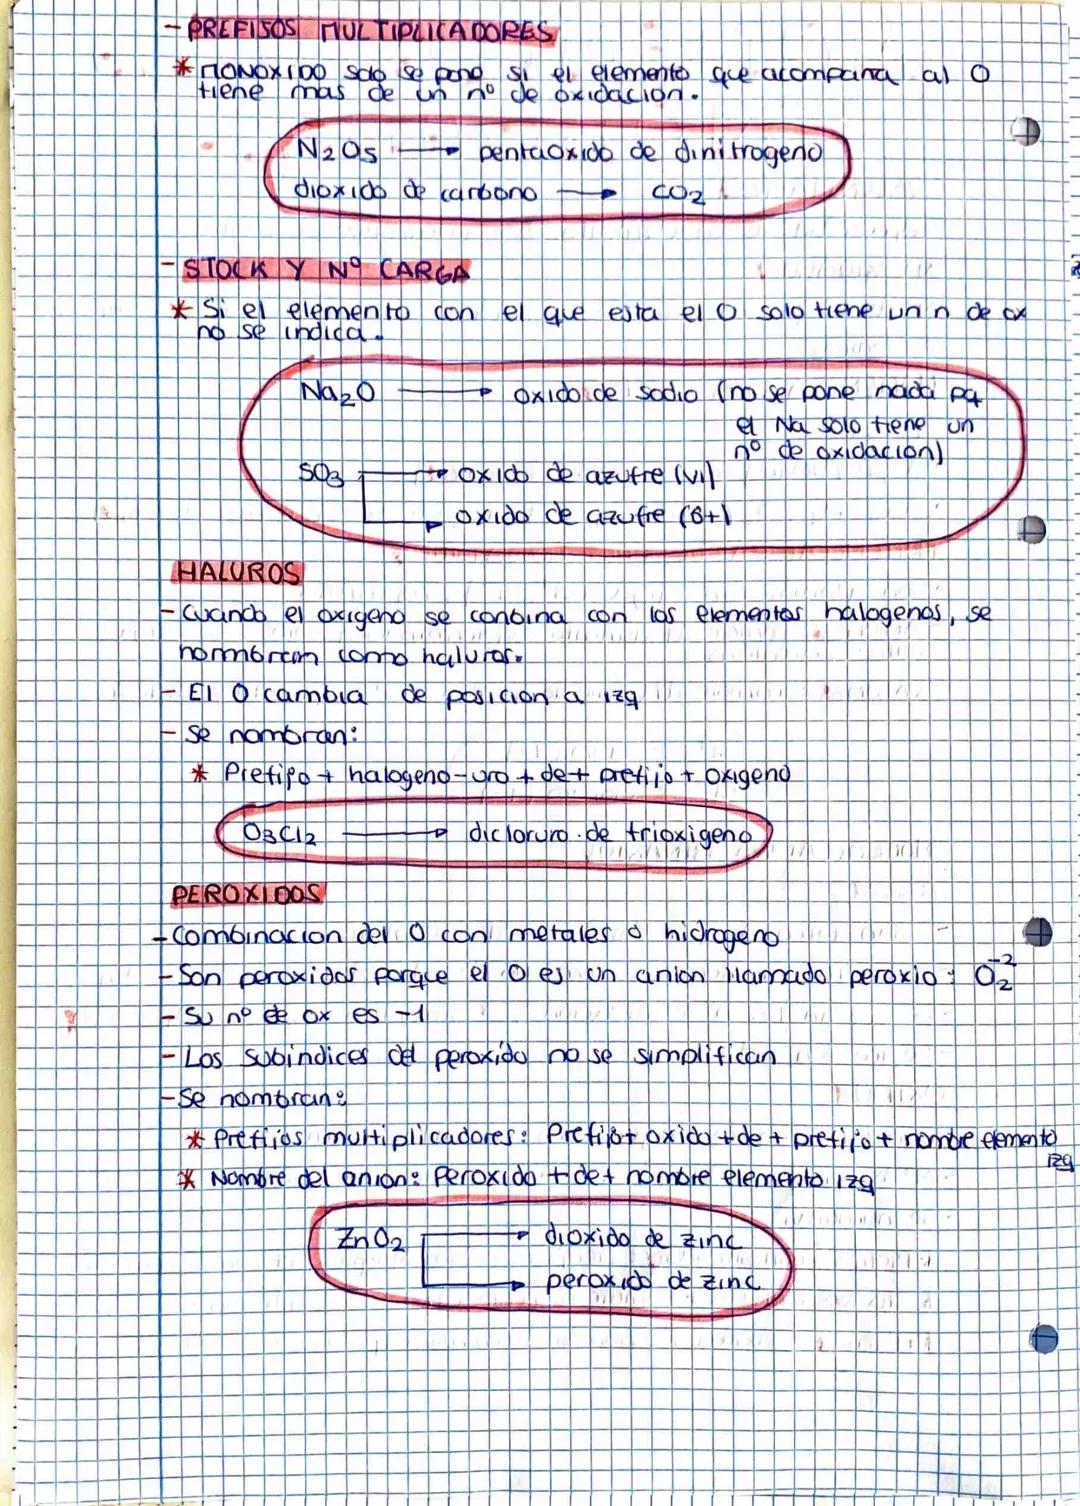 - PREFIJOS MULTIPLICADORES
* MONOXIDO solo se pong si el elemento que acompana al O
tiene mas de un nº de oxidacion.
N2O5 → pentaoxido de dinitrogeno
dioxido de carbono → CO2
- STOCK Y Nº CARGA
* Si el elemento con el que esta el O solo tiene un n de ox
no se indica.
Na2O → oxido de sodio (no se pone nada pq
el Na solo tiene un
nº de oxidacion)
SO3 → oxido de azufre (VI)
→ oxido de azufre (6+)
HALUROS
- Cuando el oxigeno se conbina con los elementos halogenos, se
normbran como haluros.
- El O cambia de posicion a izq
- Se nombran:
* Prefijo + halogeno-uro + de + prefijo + oxigeno
O3Cl2 → dicloruro de trioxigeno
PEROXIDOS
- Combinacion del O con metales o hidrogeno
- Son peroxidos porque el O es un anion llamado peroxio: O2-2
- Su nº de ox es -1
- Los subindices del peroxido no se simplifican
- Se nombran:
* Prefijos multiplicadores: Prefijo + oxido + de + prefijo + nombre elemento
izq
* Nombre del anion: Peroxido + de + nombre elemento izq
ZnO2 → dioxido de zinc
→ peroxido de zinc